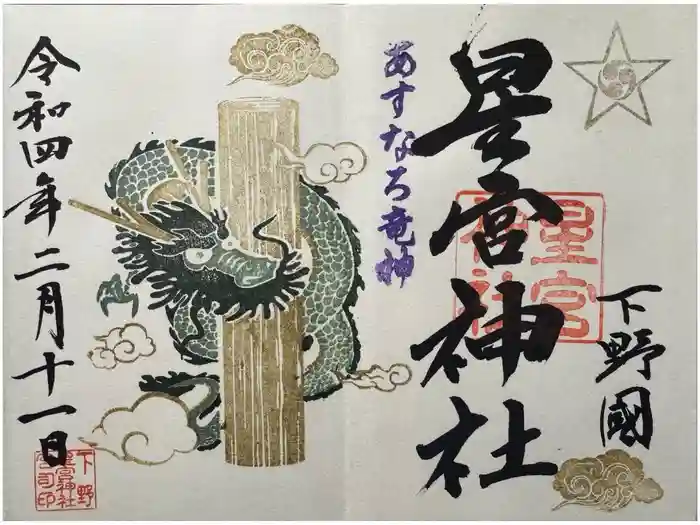 下野國
星宮神社
星宮神社
あすなろ竜神
令和四年二月十一日
下野
星宮神社
宮司印